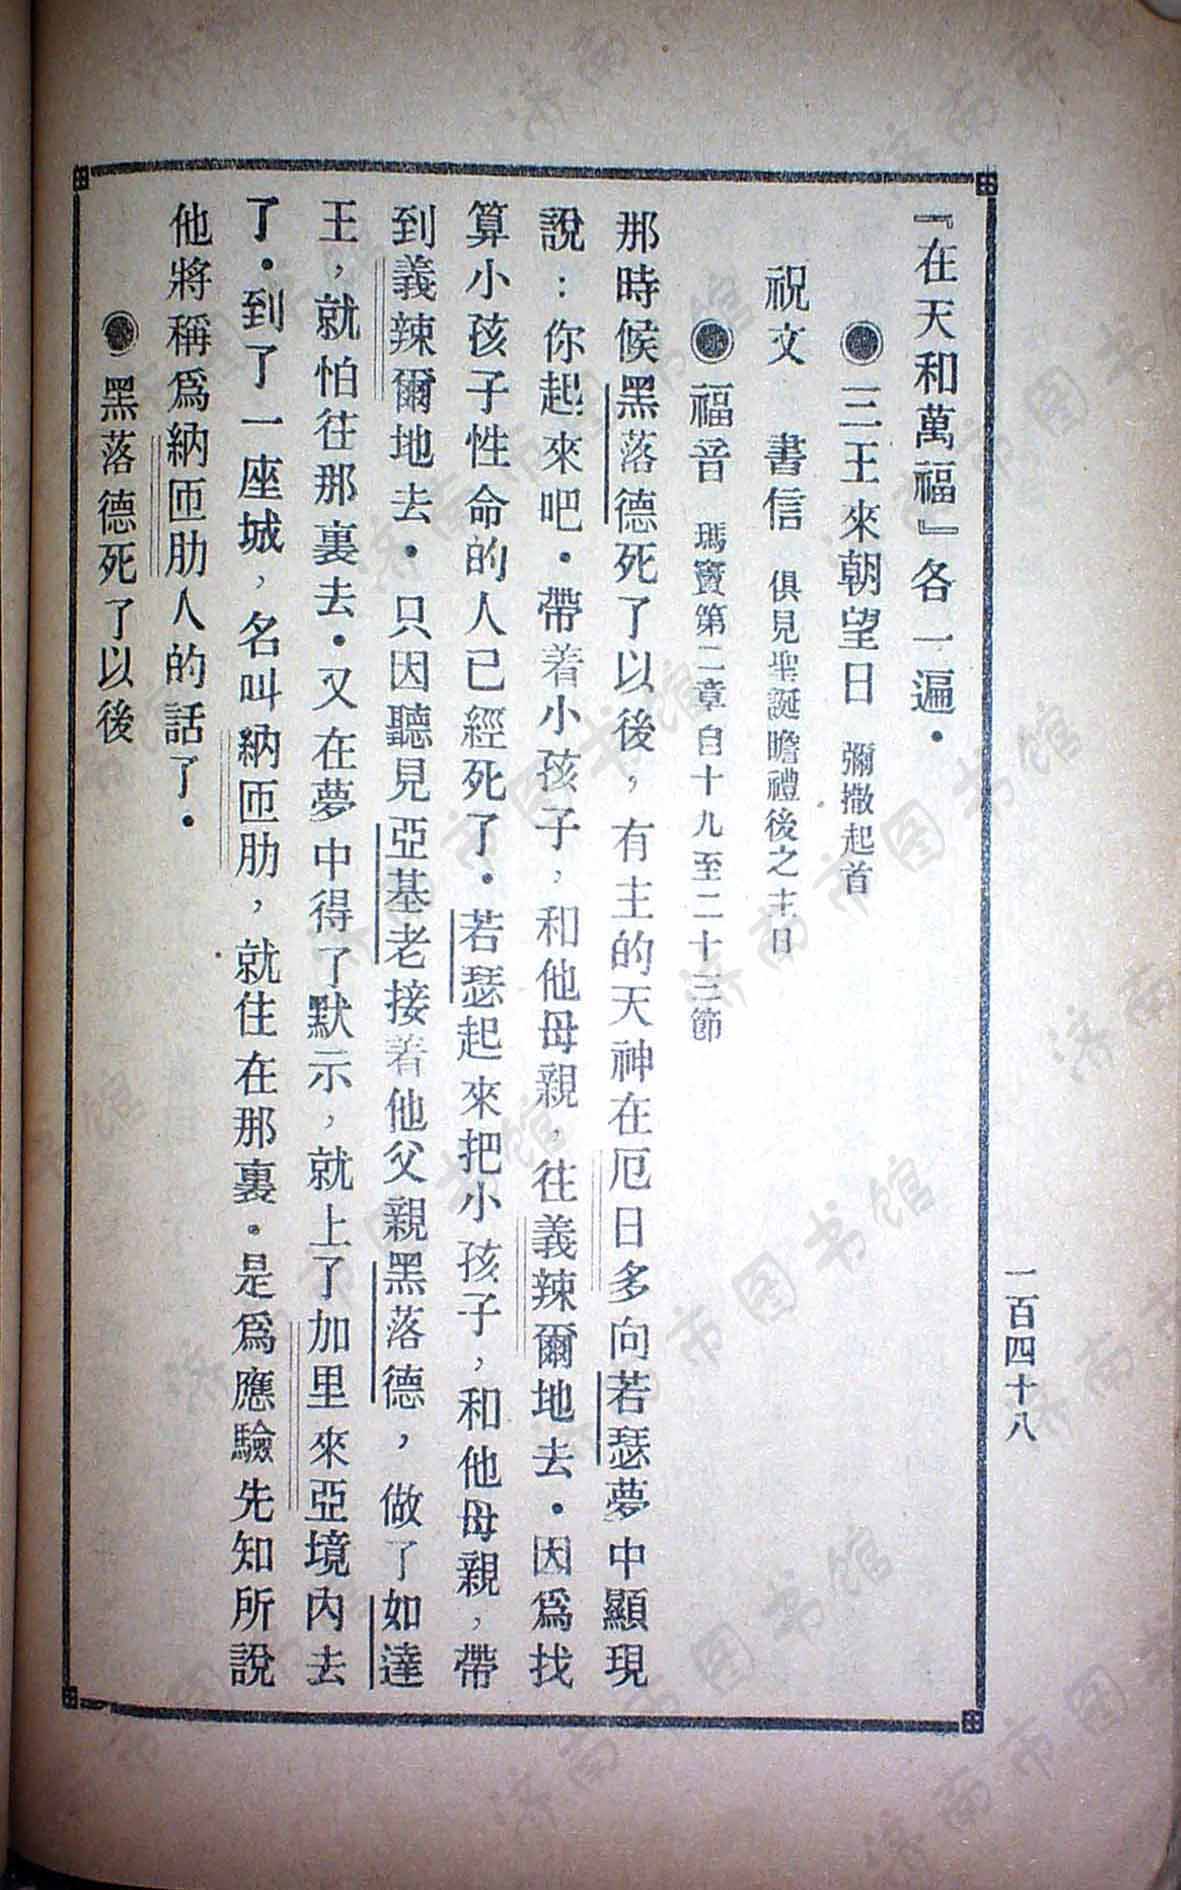 『在天和萬福』各一遍．
◉三王來朝望日　彌撒起首
祝文　書信　俱見聖誕瞻禮後之主日
◉福音　瑪竇第二章自十九至二十三節
那時候黑落德死了以後，有主的天神在厄日多向若瑟夢中顯現
說：你起來吧．帶着小孩子，和他母親，往義辣爾地去．因爲找
算小孩子性命的人已經死了．若瑟起來把小孩子，和他母親，帶
到義辣爾地去．只因聽見亞基老接着他父親黑落德，做了如達
王，就怕往那裏去．又在夢中得了默示，就上了加里來亞境內去
了．到了一座城，名叫納匝肋，就住在那裏．是爲應驗先知所說
他將稱爲納匝肋人的話了．
◉黑落德死了以後
一百四十八
济南市图书馆